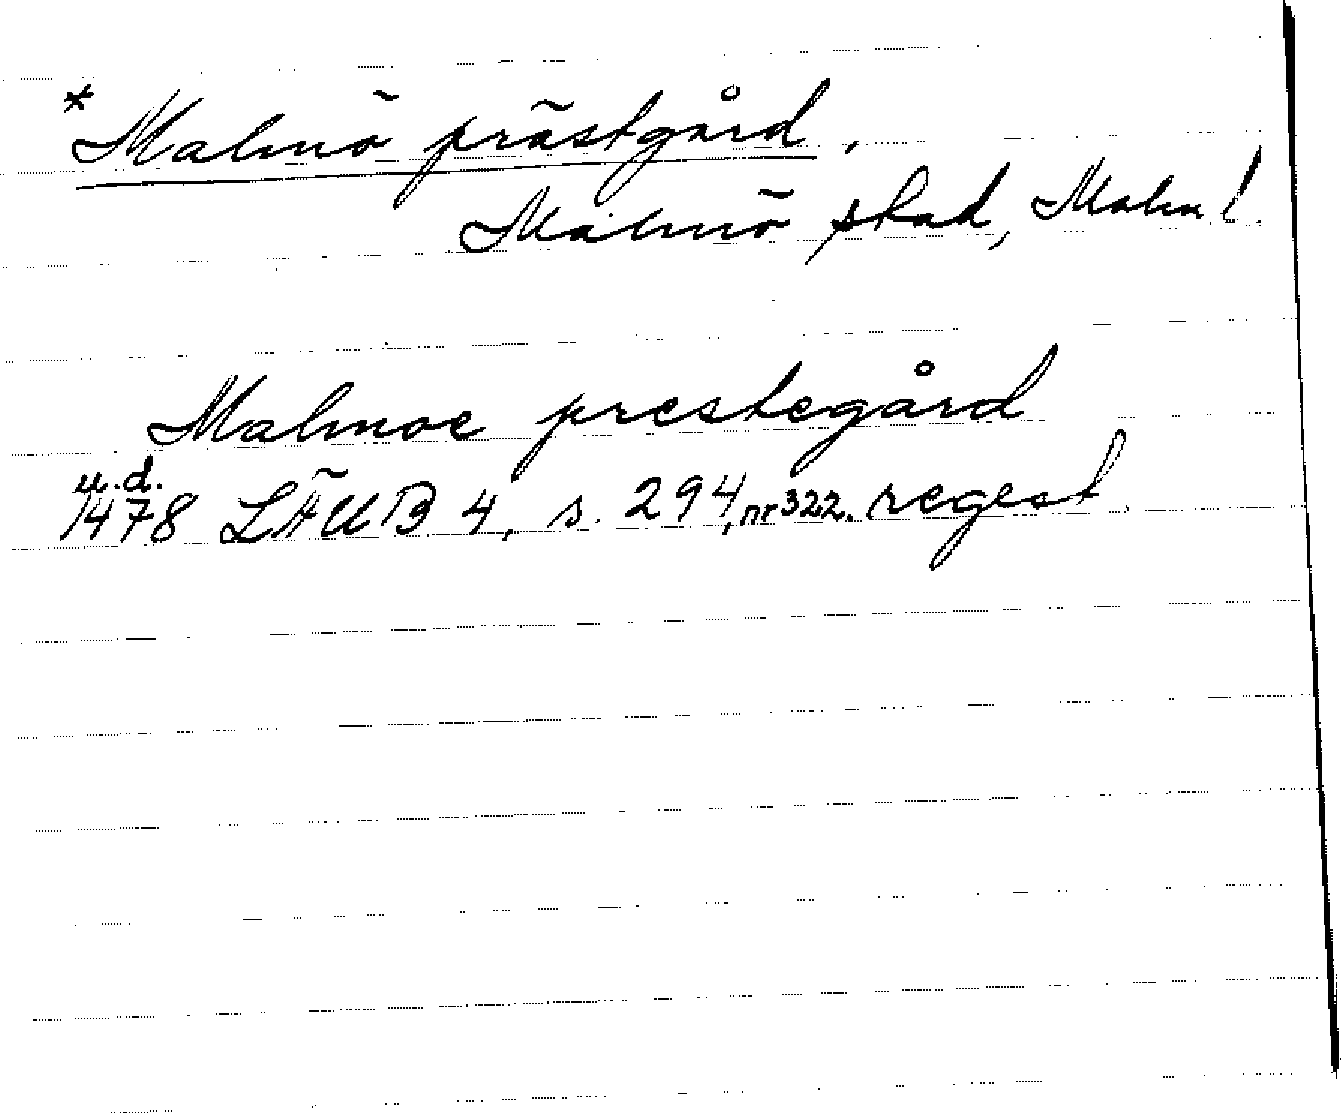 *Malmö prästgård,
Malmö stad, Malm l.
Malmoe prestegård
u.d.
1478 LÄUB 4, s. 294, nr 322. regest.